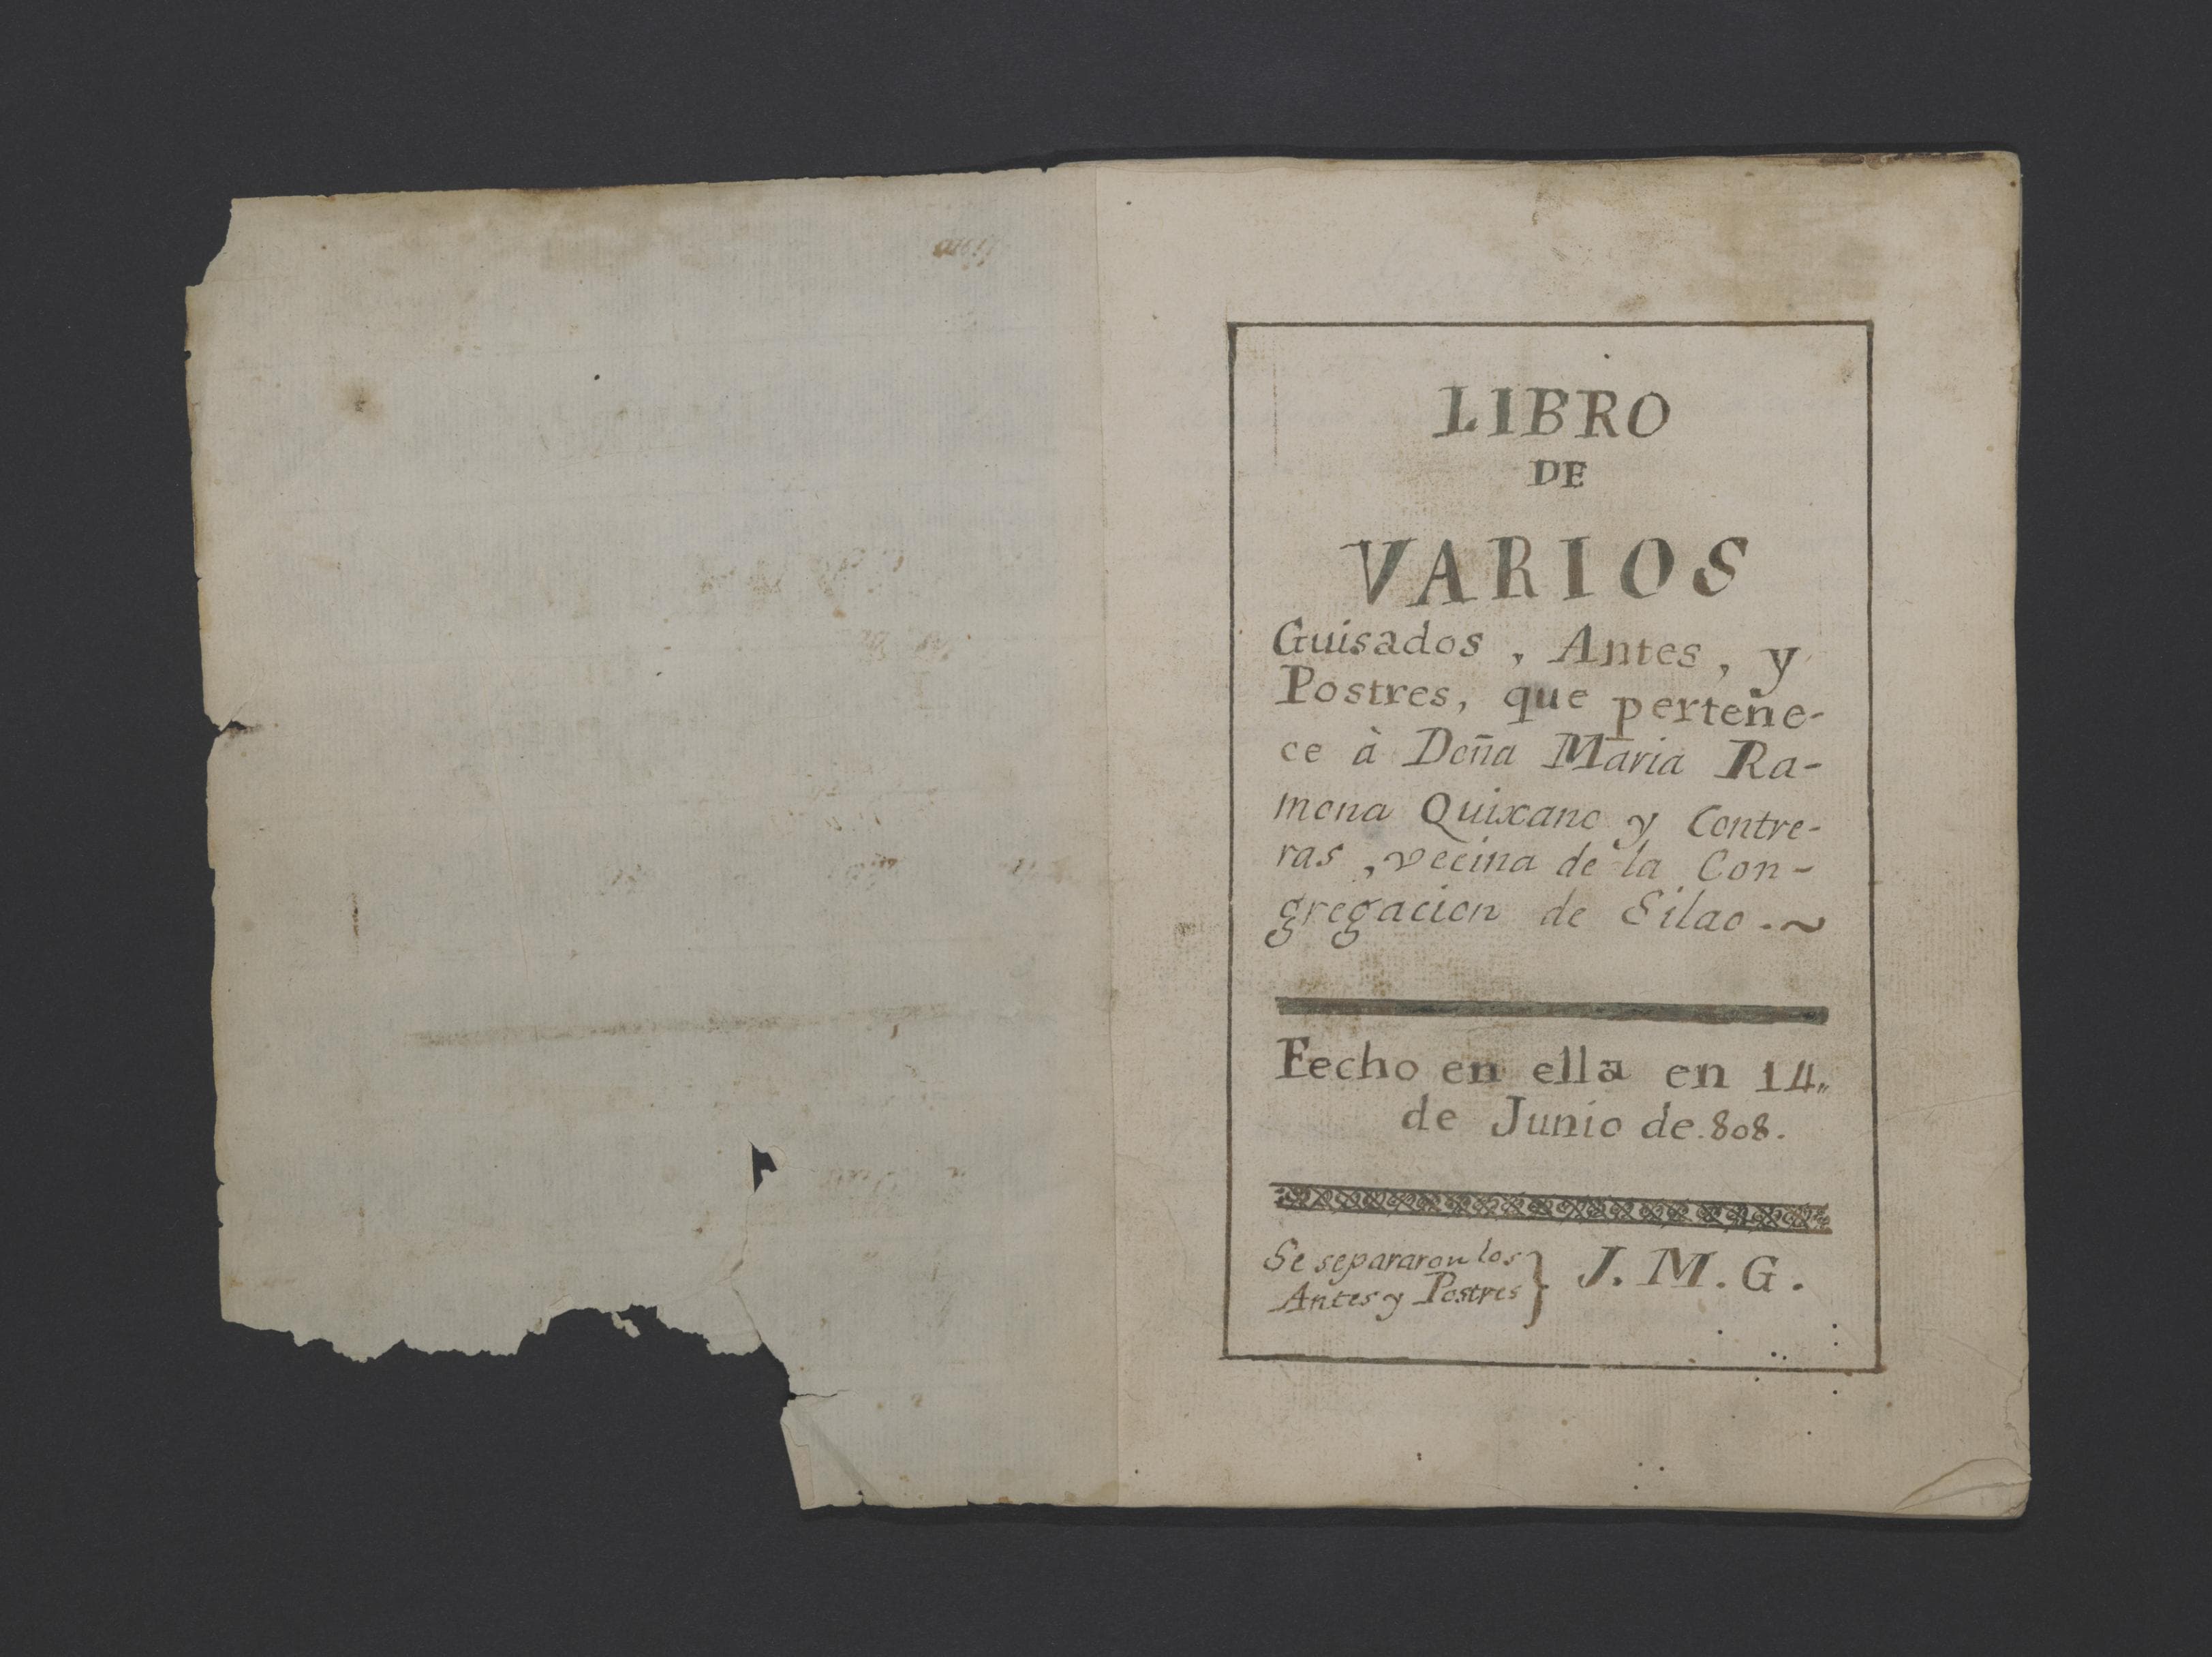 LIBRO
DE
VARIOS
Guisados, Antes, y
Postres, que perteñe-
ce à Doña Maria Ra-
mona Quixano y Contre-
ras, vecina de la Con-
gregacion de Silao.~
Fecho en ella en 14„
de Junio de.808.
Se separaron los
Antes y Postres } J. M. G.